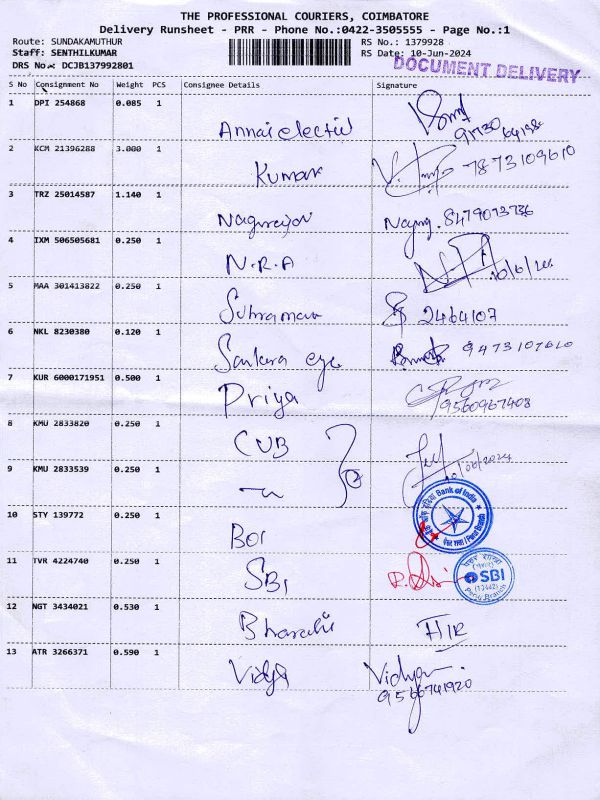 THE PROFESSIONAL COURIERS, COIMBATORE
Delivery Runsheet - PRR - Phone No.:0422-3505555 - Page No.:1
Route: SUNDAKAMUTHUR RS No.: 1379928
Staff: SENTHILKUMAR RS Date: 10-Jun-2024
DRS No.: DCJB137992801 DOCUMENT DELIVERY
S No Consignment No Weight PCS Consignee Details Signature
1 DPI 254868 0.085 1
2 KCM 21396288 3.000 1
Kumar 7873109610
3 TRZ 25014587 1.140 1
4 IXM 506505681 0.250 1
N.R.A
5 MAA 301413822 0.250 1
2464107
6 NKL 8230380 0.120 1
Sankara eye 9473107610
7 KUR 6000171951 0.500 1
Priya 9560967408
8 KMU 2833820 0.250 1
CUB
9 KMU 2833539 0.250 1
10 STY 139772 0.250 1
BOI Bank of India
11 TVR 4224740 0.250 1
SBI SBI
12 NGT 3434021 0.530 1
13 ATR 3266371 0.590 1
Vidya Vidya
9566741920